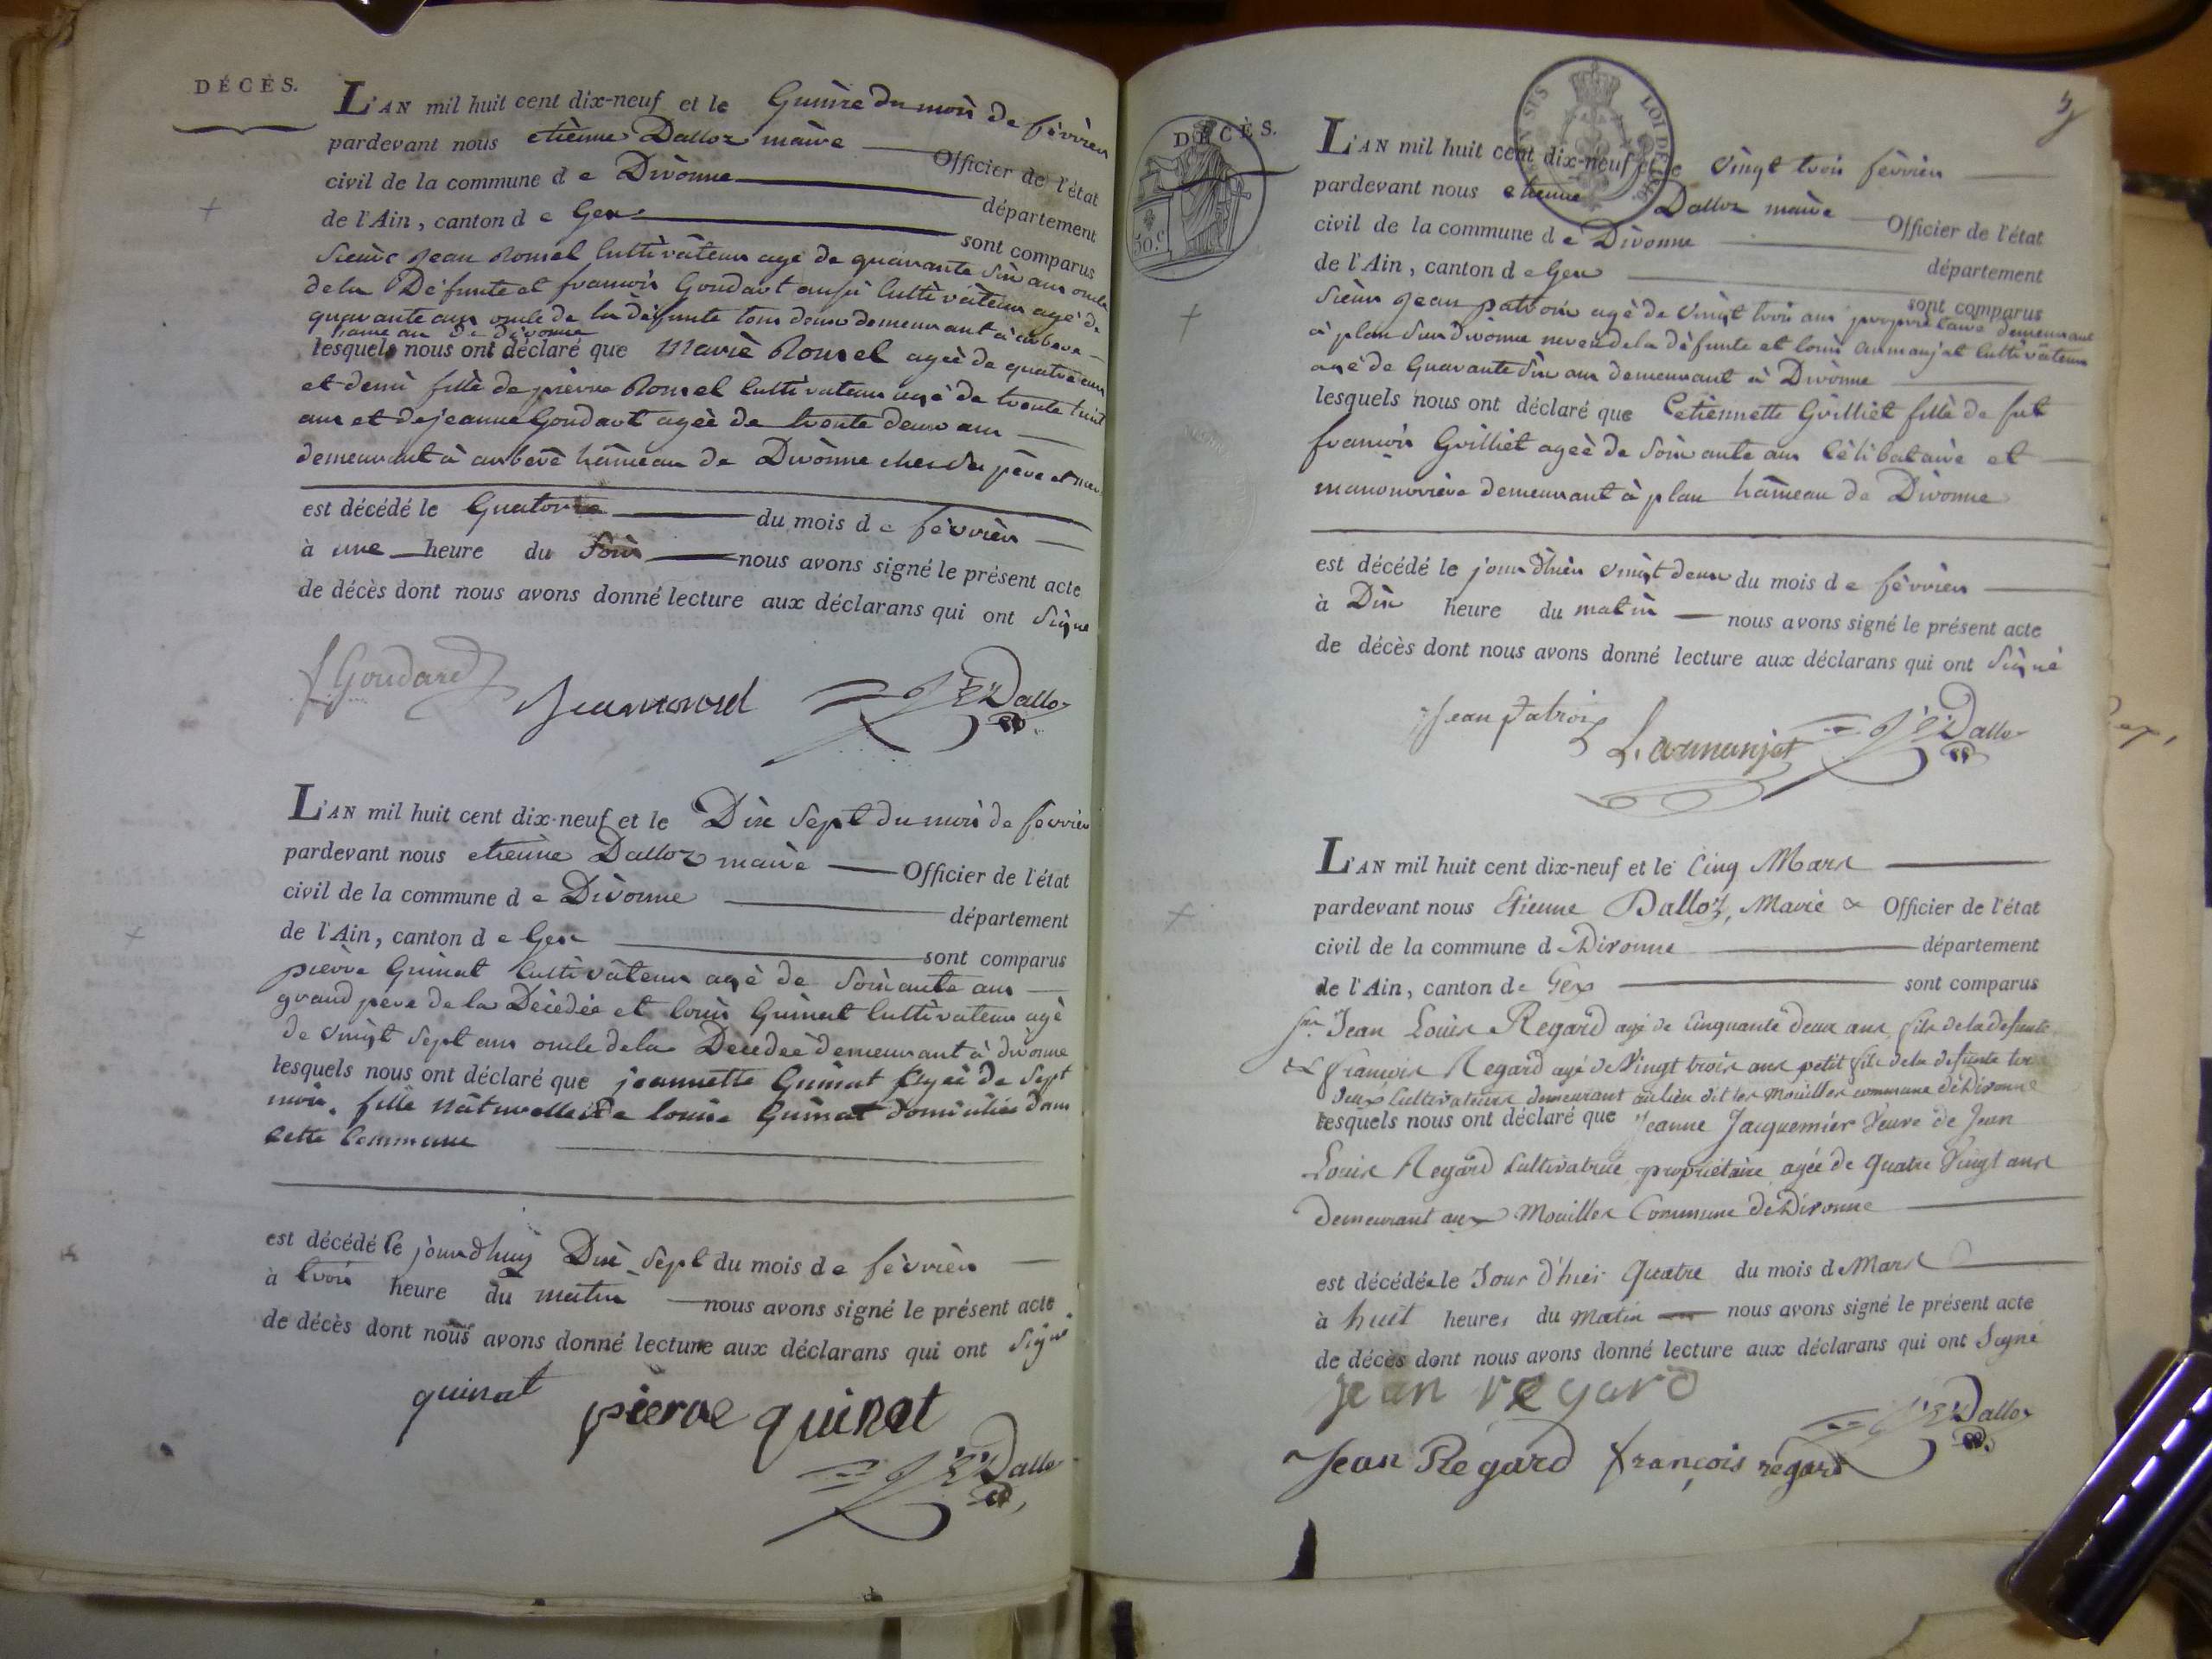 DÉCÈS.
L'AN mil huit cent dix-neuf et le Quinze du mois de fèvrier
pardevant nous etiènne Dalloz maire Officier de l'état
civil de la commune d e Divonne
département
de l'Ain, canton d e Gex
sont comparus
Jean cultivateur agé de quarante six ans oncle
dela Défunte et francois Goudart aussi Cultivateur agé de
quarante ans oncle de la défunte tous deux demeurant à arbere
hameau de divonne
lesquels nous ont déclaré que Marie agée de quatre ans
et demi fille de pierre Cultivateur agé de trente huit
ans et de jeanne Goudart agée de trente deux ans
demeurant à arbere hâmeau de Divonne chez ses père et mere
est décédé le Quatorze du mois d e fèvrier
à une heure du Soir nous avons signé le présent acte
de décès dont nous avons donné lecture aux déclarans qui ont Signé
f Goudard
Jean
Dalloz
L'AN mil huit cent dix-neuf et le Dix Sept du mois de fevrier
pardevant nous etienne Dalloz maire Officier de l'état
civil de la commune d e Divonne
département
de l'Ain, canton d e Gex
sont comparus
pierre Quinat Cultivateur agé de Soixante ans
grand pere de la Décédée et louis Quinat Cultivateur agé
de vingt Sept ans oncle dela Decedée demeurant à divonne
lesquels nous ont déclaré que jeannette Quinat agée de Sept
mois, fille naturelle de louise Quinat domiciliée dans
cette Commune
est décédé le jourdhuy Dix Sept du mois d e fèvrier
à trois heure du matin nous avons signé le présent acte
de décès dont nous avons donné lecture aux déclarans qui ont Signé
quinat pierre quinat
Dalloz
5
LOI DE 1816.
DÉCÈS.
50.C
L'AN mil huit cent dix-neuf et le vingt trois fèvrier
pardevant nous etienne Dalloz maire Officier de l'état
civil de la commune d e Divonne
département
de l'Ain, canton d e Gex
sont comparus
Jean patrois agé de vingt trois ans propriétaire demeurant
à plan Sur divonne neveu dela défunte et louis armanjat Cultivateur
agé de Quarante Six ans demeurant à Divonne
lesquels nous ont déclaré que etiennette Grilliet fille de fut
francois Grilliet agée de Soixante ans Célibataire et
manouvrière demeurant à plan hâmeau de Divonne
est décédé le jour dhier vingt deux du mois d e fèvrier
à Dix heure du matin nous avons signé le présent acte
de décès dont nous avons donné lecture aux déclarans qui ont Signé
Jean Patrois
L. armanjat
Dalloz
L'AN mil huit cent dix-neuf et le Cinq Mars
pardevant nous Etienne Dalloz, Maire Officier de l'état
civil de la commune d e Divonne département
de l'Ain, canton de Gex sont comparus
Sr. Jean Louis Regard agé de Cinquante deux ans, fils de la defunte
et francois Regard agé de Vingt trois ans petit fils de la defunte
deux Cultivateurs demeurant au lieu dit les Mouilles commune de Divonne
lesquels nous ont déclaré que Jeanne Jacquemier Veuve de Jean
Louis Regard Cultivatrice propriétaire agée de Quatre Vingt ans
demeurant aux Mouilles Commune de Divonne
est décédée le Jour d'hier Quatre du mois de Mars
à huit heures du Matin nous avons signé le présent acte
de décès dont nous avons donné lecture aux déclarans qui ont Signé
jean regard
Dalloz
Jean Regard françois régard